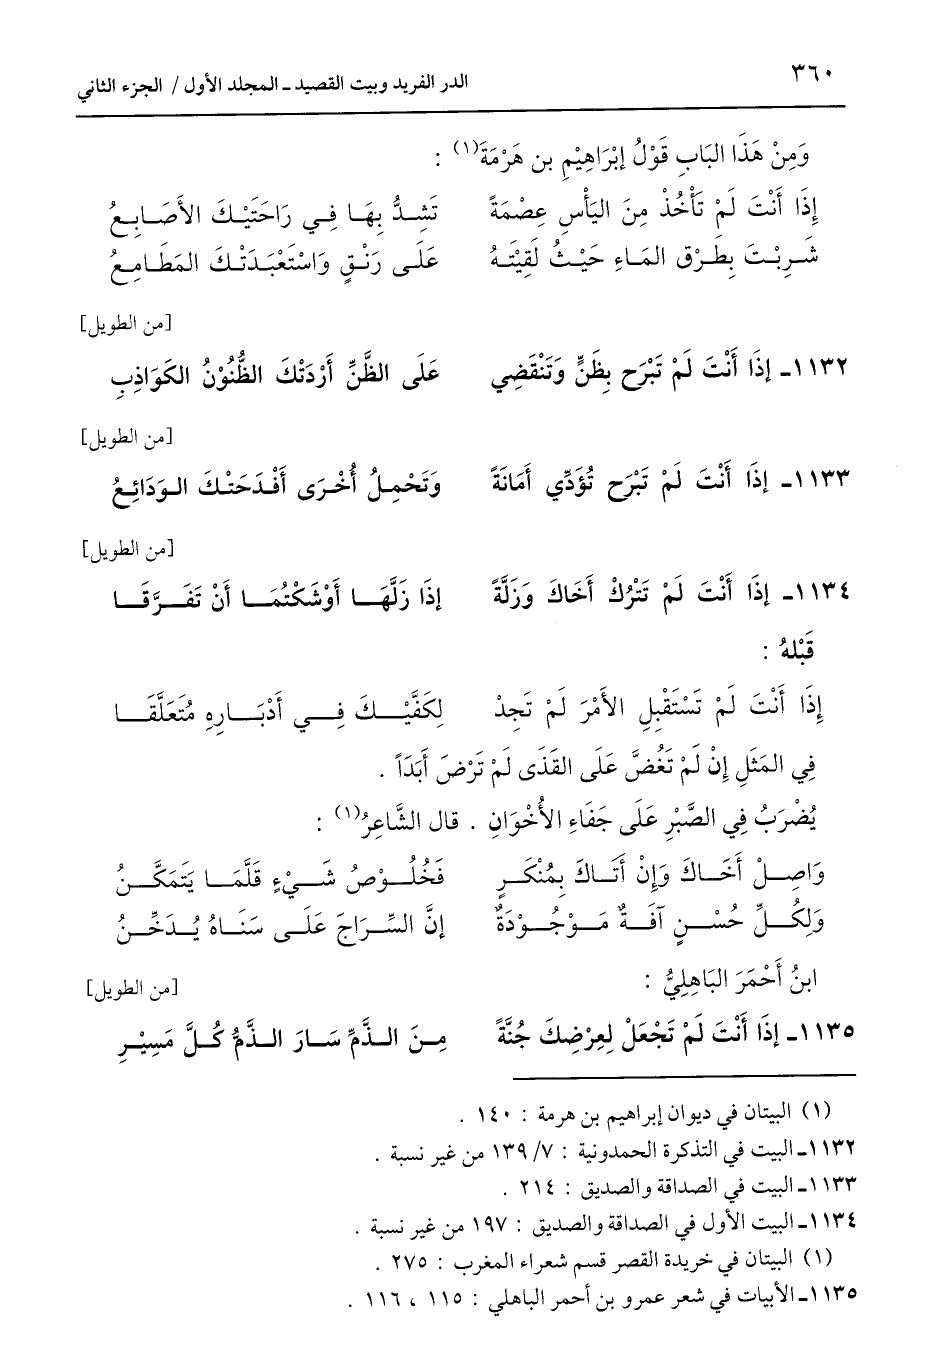 ٣٦٠ الدر الفريد وبيت القصيد ـ المجلد الأول / الجزء الثاني
وَمِنْ هَذَا البَابِ قَوْلُ إبْرَاهِيْمِ بن هَرْمَةَ(١) :
إِذَا أَنْتَ لَمْ تَأْخُذْ مِنَ اليَأْسِ عِصْمَةً تَشِدُّ بِهَا فِي رَاحَتَيْكَ الأَصَابِعُ
شَرِبْتَ بِطَرْقِ المَاءِ حَيْثُ لَقِيْتَهُ عَلَى رَنْقٍ وَاسْتَعْبَدَتْكَ المَطَامِعُ
[من الطويل]
١١٣٢ـ إِذَا أَنْتَ لَمْ تَبْرَح بِظَنٍّ وَتَنْقَضِي عَلَى الظَّنِّ أَرْدَتْكَ الظُّنُوْنُ الكَوَاذِبِ
[من الطويل]
١١٣٣ـ إِذَا أَنْتَ لَمْ تَبْرَح تُؤَدِّي أَمَانَةً وَتَحْمِلُ أُخْرَى أَفْدَحَتْكَ الوَدَائِعُ
[من الطويل]
١١٣٤ـ إِذَا أَنْتَ لَمْ تَتْرُكْ أَخَاكَ وَزَلَّةً إِذَا زَلَّهَا أَوْشَكْتُمَا أَنْ تَفَرَّقَا
قَبْلهُ :
إِذَا أَنْتَ لَمْ تَسْتَقْبِلِ الأَمْرَ لَمْ تَجِدْ لِكَفَّيْكَ فِي أَدْبَارِهِ مُتَعَلَّقَا
فِي المَثَلِ إِنْ لَمْ تَغُضَّ عَلَى القَذَى لَمْ تَرْضَ أَبَدَاً .
يُضْرَبُ فِي الصَّبْرِ عَلَى جَفَاءِ الأُخْوَانِ . قال الشَّاعِرُ(١) :
وَاصِلْ أَخَاكَ وَإِنْ أَتَاكَ بِمُنْكَرٍ فَخُلُوْصُ شَيْءٍ قَلَّمَا يَتَمَكَّنُ
وَلِكُلِّ حُسْنٍ آفَةٌ مَوْجُوْدَةٌ إِنَّ السِّرَاجَ عَلَى سَنَاهُ يُدَخِّنُ
ابنُ أَحْمَرَ البَاهِلِيُّ : [من الطويل]
١١٣٥ـ إِذَا أَنْتَ لَمْ تَجْعَلْ لِعِرْضِكَ جُنَّةً مِنَ الذَّمِّ سَارَ الذَّمُّ كُلَّ مَسِيْرِ
(١) البيتان في ديوان إبراهيم بن هرمة : ١٤٠ .
١١٣٢ـ البيت في التذكرة الحمدونية : ٧/ ١٣٩ من غير نسبة .
١١٣٣ـ البيت في الصداقة والصديق : ٢١٤ .
١١٣٤ـ البيت الأول في الصداقة والصديق : ١٩٧ من غير نسبة .
(١) البيتان في خريدة القصر قسم شعراء المغرب : ٢٧٥ .
١١٣٥ـ الأبيات في شعر عمرو بن أحمر الباهلي : ١١٥ ، ١١٦ .